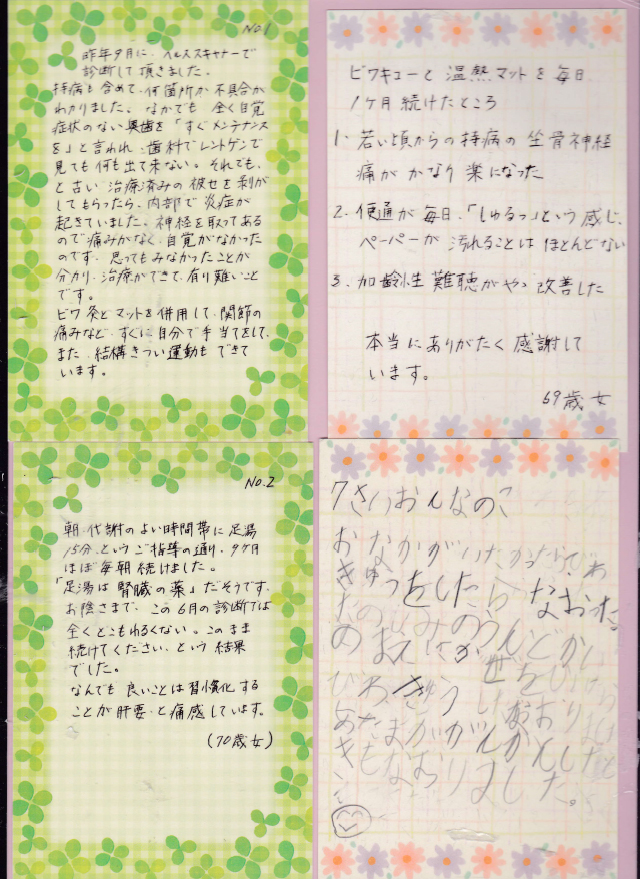 No.1
昨年9月に、ヘルススキャナーで
診断して頂きました。
持病も含めて、何箇所か不具合が
わかりました。なかでも 全く自覚
症状のない奥歯を「すぐメンテナンス
を」と言われ、歯科でレントゲンで
見ても何も出て来ない。それでも、
と古い治療済みの被せを剥がし
てもらったら、内部で炎症が
起きていました。神経を取ってある
ので痛みがなく、自覚がなかった
のです。思ってもみなかったことが
分かり、治療ができて、有り難いこと
です。
ビワ灸とマットを併用して、関節の
痛みなど、すぐに自分で手当てをして、
また、結構きつい運動も できて
います。
ビワキューと 温熱マットを 毎日、
1ケ月 続けたところ
1. 若い頃からの持病の 坐骨神経
痛が かなり 楽になった
2. 便通が 毎日、「しゅるっ」という 感じ、
ペーパーが 汚れることは ほとんどない
3. 加齢性 難聴が やゝ 改善した
本当に ありがたく 感謝して
います。
69歳 女
No.2
朝、代謝のよい時間帯に足湯
15分、という ご指導の通り、9ケ月
ほぼ毎朝 続けました。
「足湯は 腎臓の薬」だそうです。
お陰さまで、この6月の診断では
全くどこもわるくない。このまま
続けてください、という 結果
でした。
なんでも 良いことは 習慣化する
ことが 肝要、と痛感しています。
(70歳女)
7さいおんなのこ
おなかがいたかったら、びわ
きゅうをしたら なおった。
のまえ
びわきゅう
あたまががんがんしたと
きもなおりました。